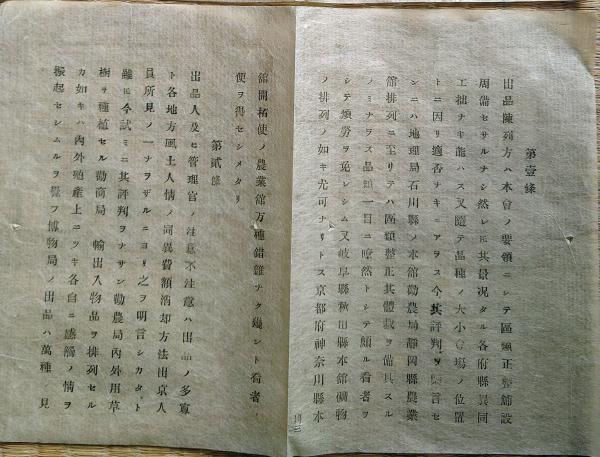 第壹條
出品陳列方ハ本會ノ要領ニシテ區類正整舖設
周備セサルナシ然レ𪜈其景况タル各府縣異同
工拙ナキ能ハス又隨テ品種ノ大小會場ノ位置
トニ因リ適否ナキニアラス今其評判ヲ概言セ
ンニハ地理局石川縣ノ本館勸農局靜岡縣農業
館排列ニ至リテハ區類整正其體裁ヲ備具スル
ノミナラス品類一目ニ瞭然トシテ頗ル看者ヲ
シテ煩勞ヲ免レシム又岐阜縣秋田縣本館礦物
ノ排列ノ如キ尤可ナリトス京都府神奈川縣本
館開拓使ノ農業館万種錯雜ナク幾ント看者ノ
便ヲ得セシメタリ
第貳條
出品人及ヒ管理官ノ注意不注意ハ出品ノ多寡
ト各地方風土人情ノ同異費額消却方法出京人
員所見ノ一ナラザルニヨリ之ヲ明言シカタシト
雖𪜈今試ミニ其評判ヲナサン勸農局內外用草
樹ヲ種植セル勸商局ノ輸出入物品ヲ排列セル
カ如キハ內外殖產上ニツキ各自ニ感觸ノ情ヲ
振起セシムルヲ覺フ博物局ノ出品ハ萬種ノ見